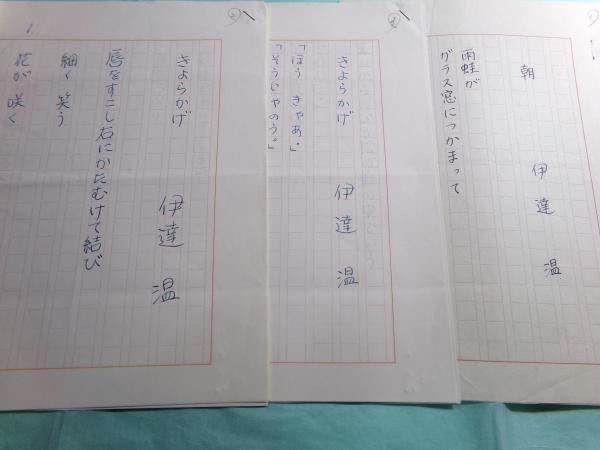 朝
伊達 温
雨蛙が
ガラス窓につかまって
きよらかげ
伊達 温
「ほう きゃあ。
「そうじゃのう。」
きよらかげ
伊達 温
唇をすこし右にかたむけて結び
細く笑う
花が咲く
1.